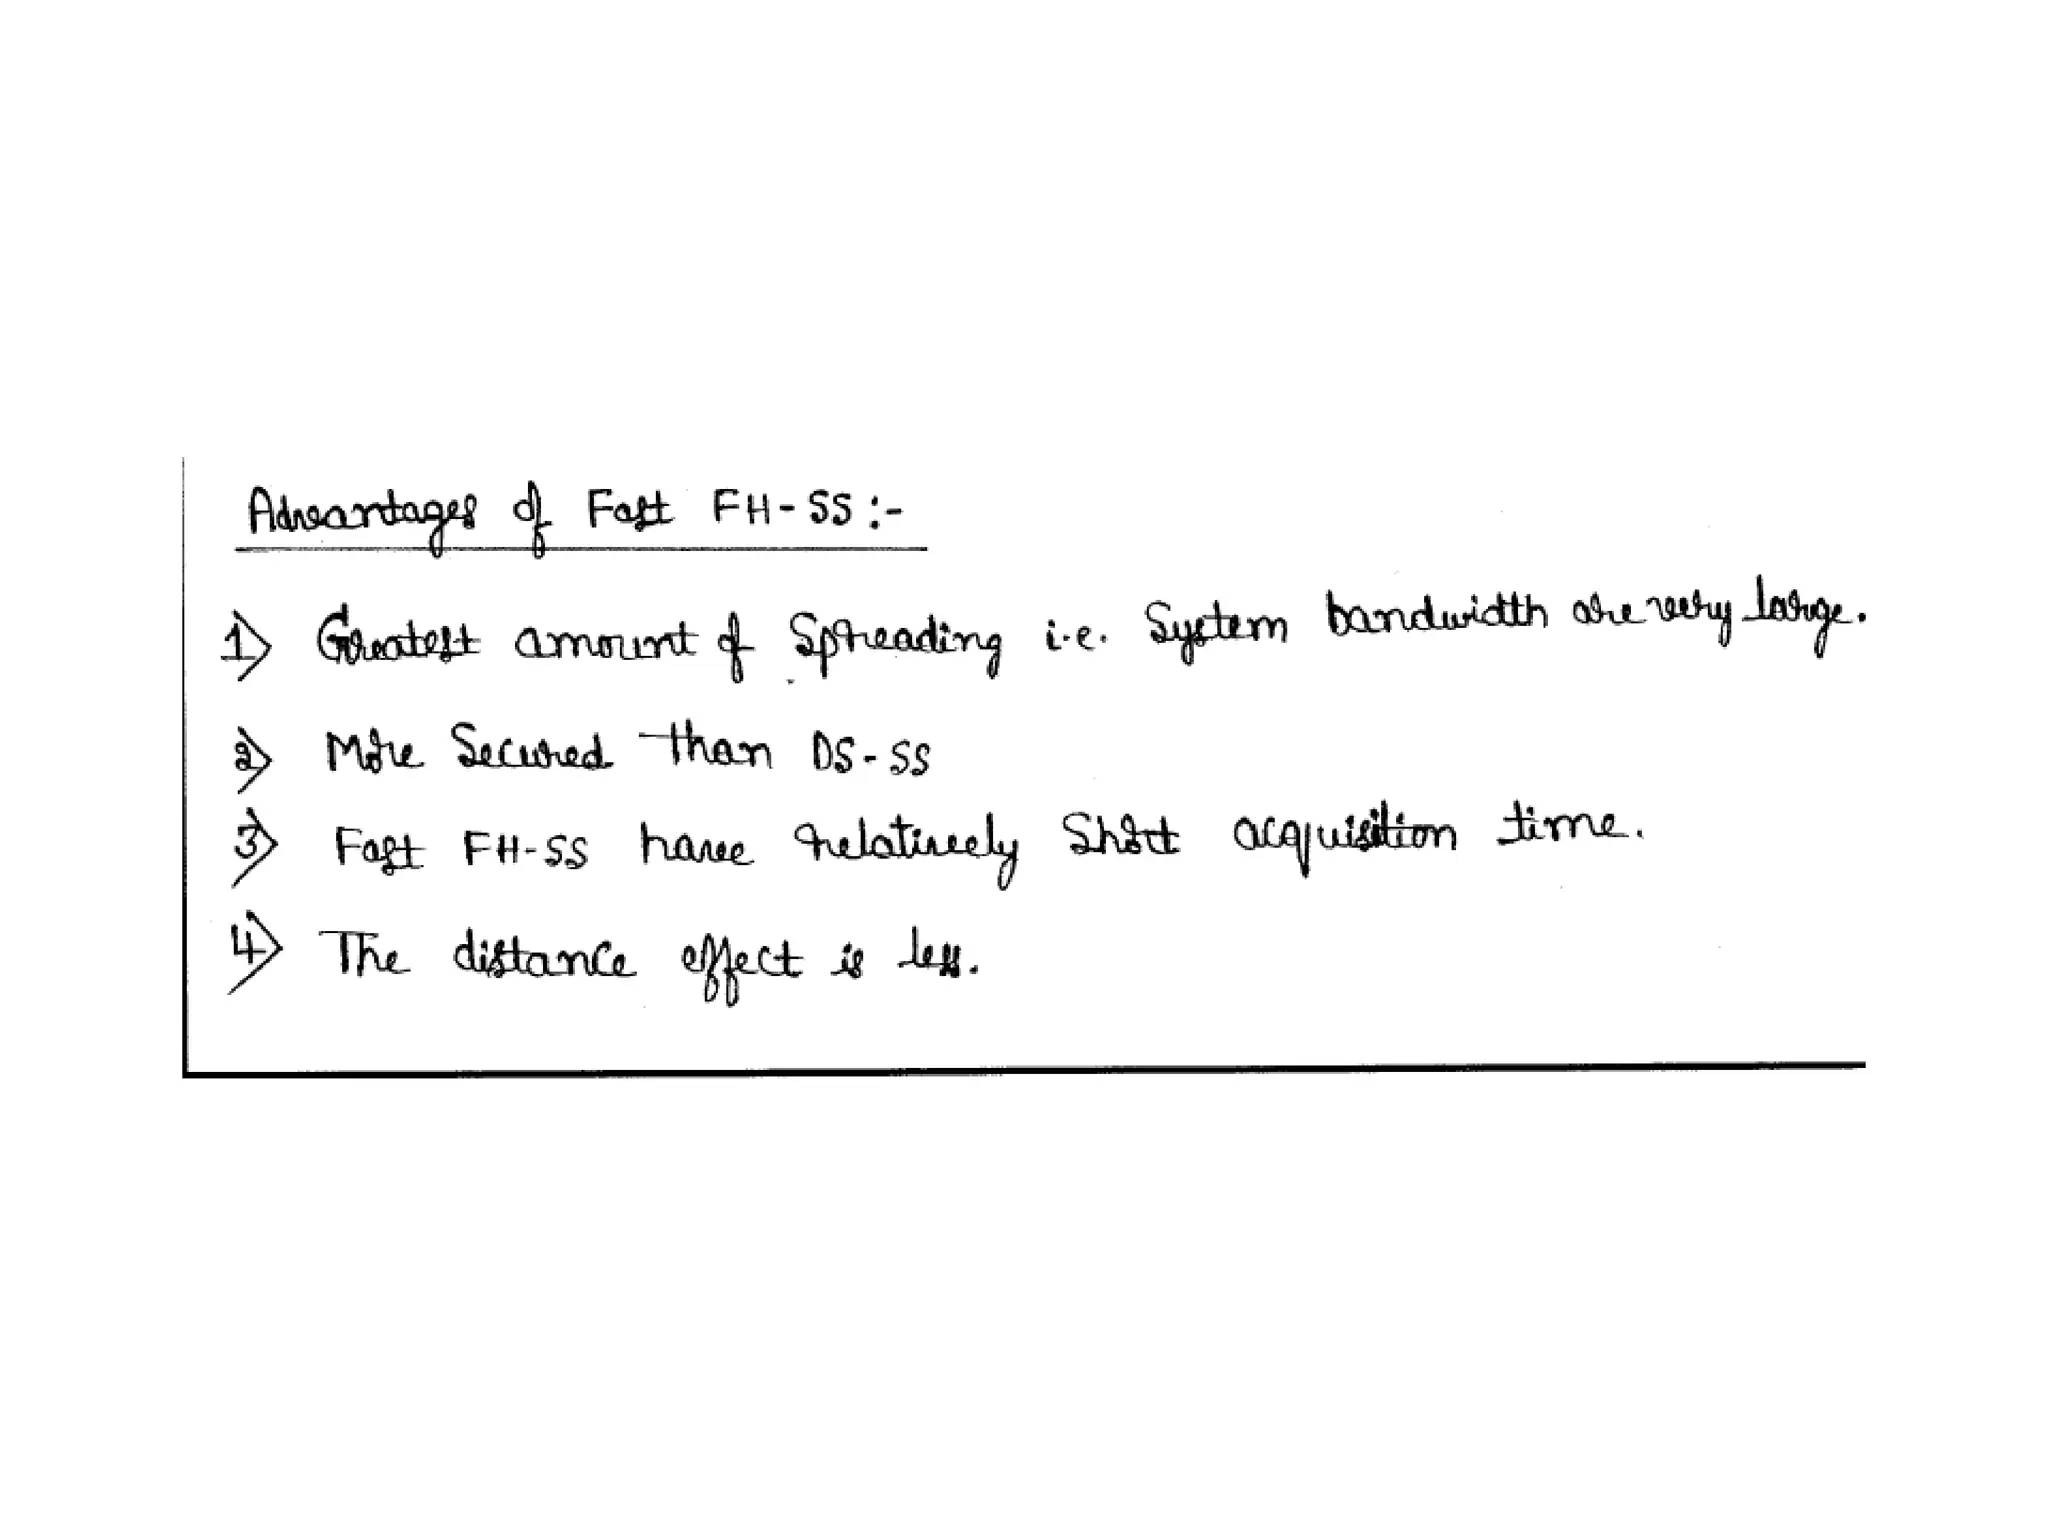 Advantages of Fast FH-SS :-
1) Greatest amount of Spreading i.e. System bandwidth are very large.
2) More Secured than DS-SS
3) Fast FH-SS have relatively Short acquisition time.
4) The distance effect is less.